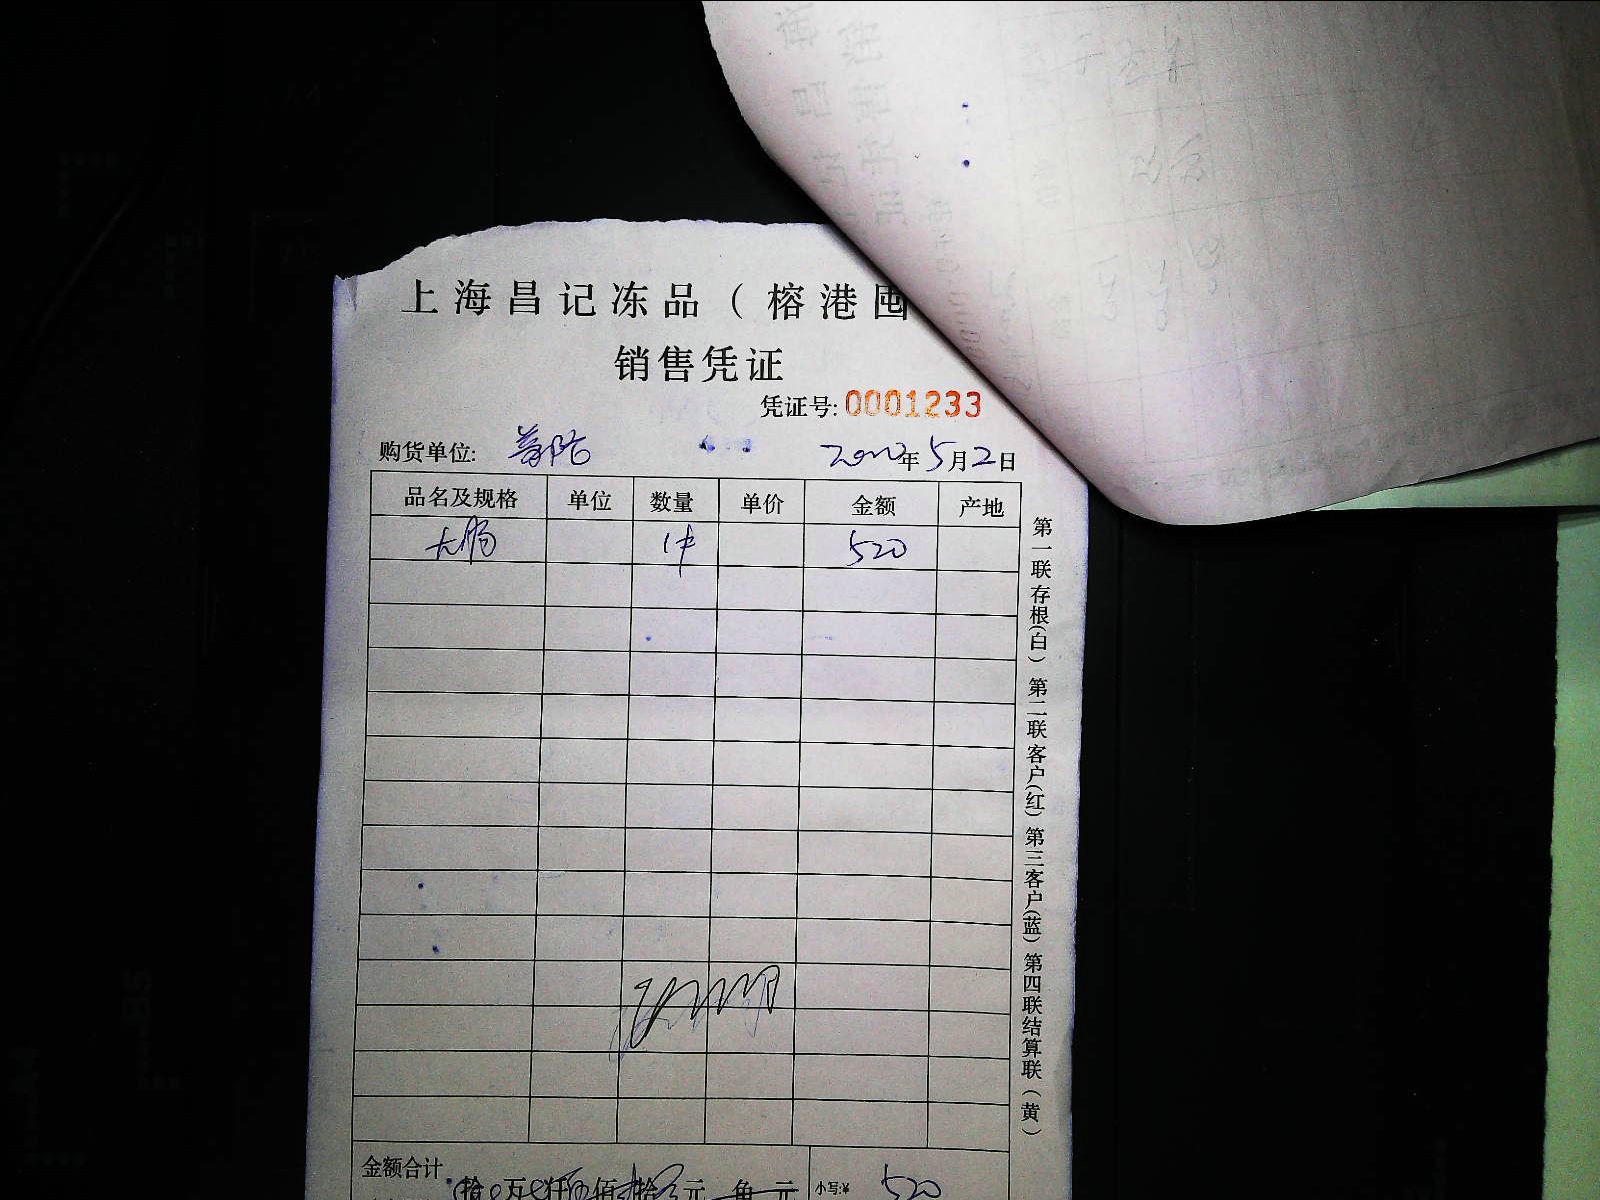 上海昌记冻品（榕港囤
销售凭证
凭证号:0001233
购货单位:
年5月2日
品名及规格 单位 数量 单价 金额 产地
大肠 1件 520
第一联存根(白) 第二联客户(红) 第三客户(蓝) 第四联结算联(黄)
金额合计 拾 万 仟 佰 拾 元 角 元 小写:¥ 520